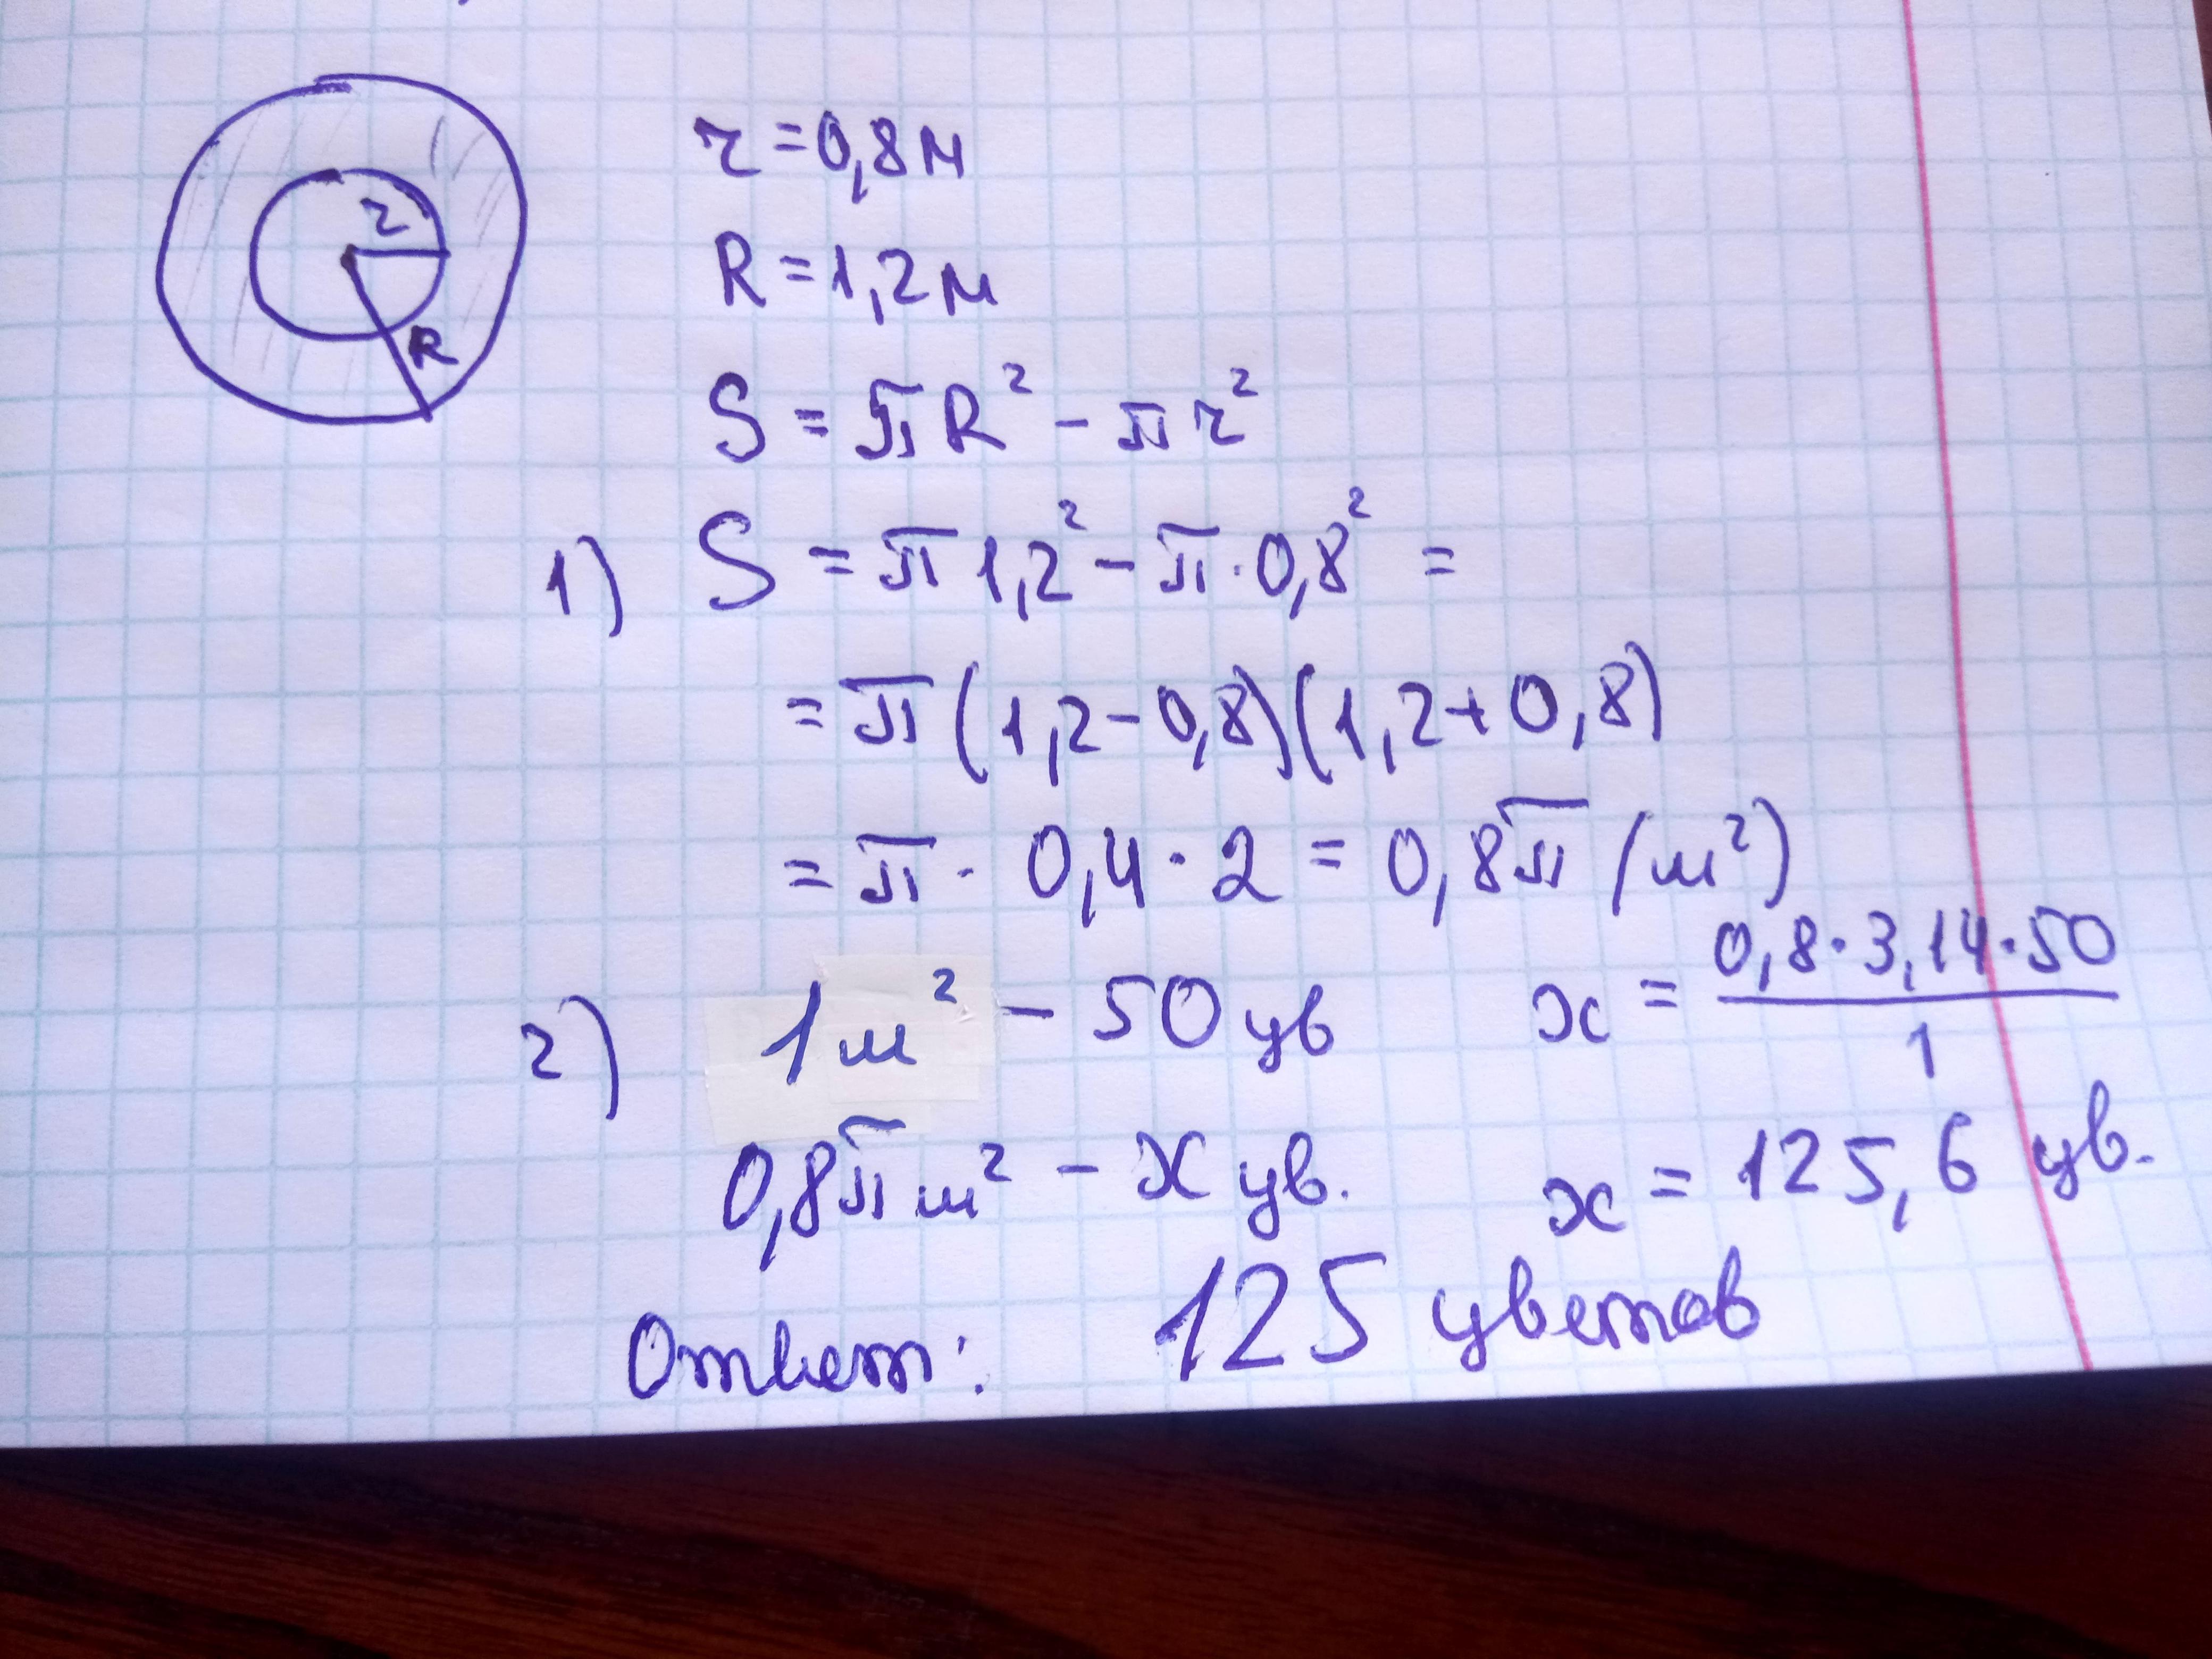 r
R
r = 0,8 м
R = 1,2 м
S = πR² - πr²
1) S = π 1,2² - π · 0,8² =
= π (1,2 - 0,8)(1,2 + 0,8)
= π · 0,4 · 2 = 0,8π (м²)
2) 1 м² - 50 цв
0,8π м² - x цв.
x = 0,8 · 3,14 · 50 / 1
x = 125,6 цв.
Ответ: 125 цветов